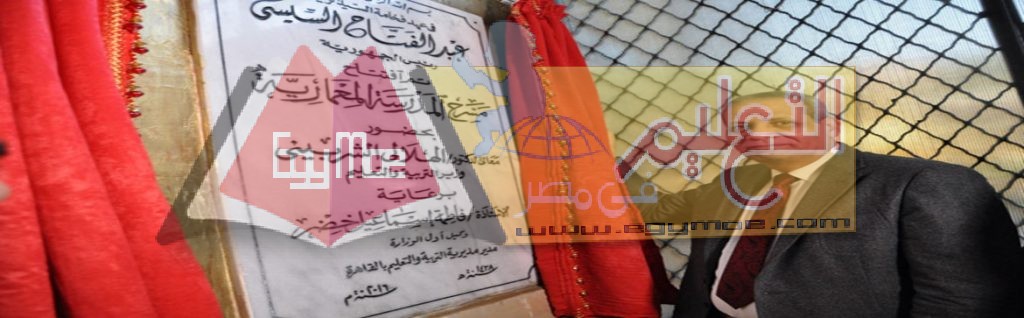 في عهد فخامة السيد
عبد الفتاح السيسى
رئيس الجمهورية
تم افتتاح
مسرح المدرسة
بحضور
الهلالى الشربينى
وزير التربية والتعليم
برعاية
الأستاذة / فاطمة
وكيل أول الوزارة
مدير مديرية التربية والتعليم بالقاهرة
١٤٣٨هـ
٢٠١٦م
التعليم
في مصر
www.egymoe.com